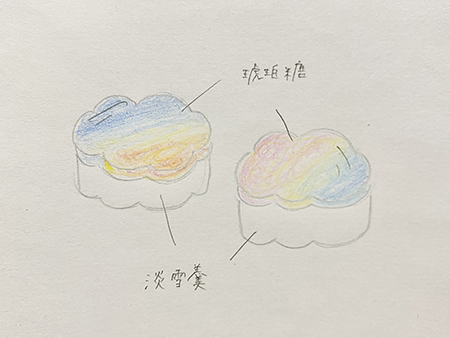 琥珀糖
淡雪羹